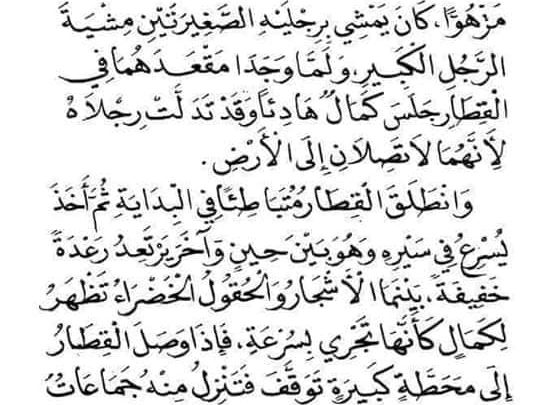 مَزْهُوًّا، كَانَ يَمْشِي بِرِجْلَيْهِ الصَّغِيرَتَيْنِ مِشْيَةَ
الرَّجُلِ الْكَبِيرِ، وَلَمَّا وَجَدَا مَقْعَدَهُمَا فِي
الْقِطَارِ جَلَسَ كَمَالٌ هَادِئاً وَقَدْ تَدَلَّتْ رِجْلَاهُ
لِأَنَّهُمَا لَا تَصِلَانِ إِلَى الْأَرْضِ.
وَانْطَلَقَ الْقِطَارُ مُتَبَاطِئًا فِي الْبِدَايَةِ ثُمَّ أَخَذَ
يُسْرِعُ فِي سَيْرِهِ وَهُوَ بَيْنَ حِينٍ وَآخَرَ يَرْتَعِدُ رَعْدَةً
خَفِيفَةً، بَيْنَمَا الْأَشْجَارُ وَالْحُقُولُ الْخَضْرَاءُ تَظْهَرُ
لِكَمَالٍ كَأَنَّهَا تَجْرِي بِسُرْعَةٍ، فَإِذَا وَصَلَ الْقِطَارُ
إِلَى مَحَطَّةٍ كَبِيرَةٍ تَوَقَّفَ فَتَنْزِلُ مِنْهُ جَمَاعَاتٌ